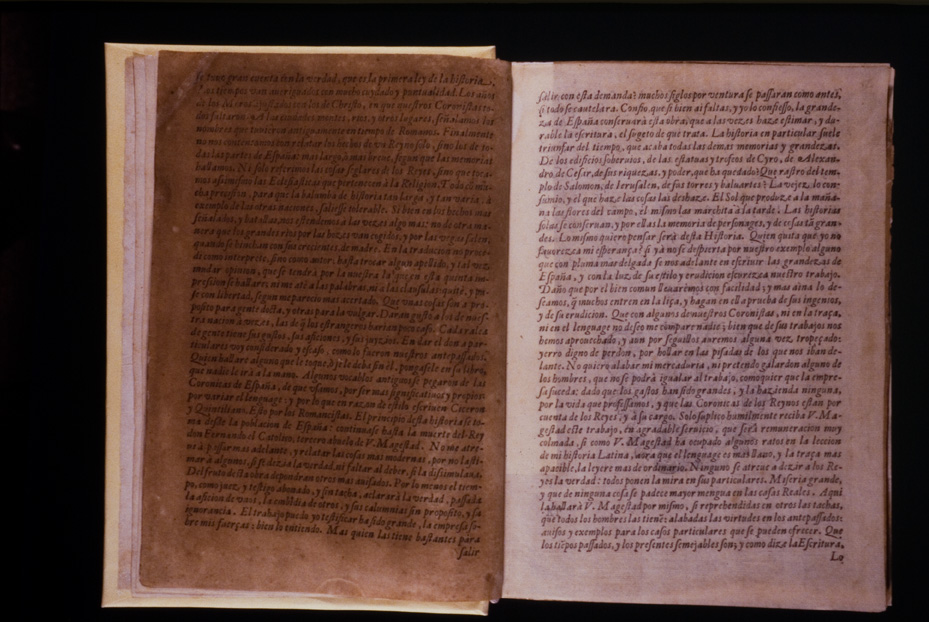 se tuvo gran cuenta con la verdad, que es la primera ley de la historia.
Los tiempos van averiguados con mucho cuydado y puntualidad. Los años
de los Moros ajustados con los de Christo, en que nuestros Coronistas to-
dos faltaron. A las ciudades montes, rios, y otros lugares, señalamos los
nombres que tuvieron antiguamente en tiempo de Romanos. Finalmente
no nos contentamos con relatar los hechos de vn Reyno solo, sino los de to-
das las partes de España: mas largo, o mas breve, segun que las memorias
hallamos. Ni solo referimos las cosas seglares de los Reyes, sino que toca-
mos assimismo las Eclesiasticas que pertenecen a la Religion. Todo con mu-
cha precision, para que la balumba de historia tan larga, y tan varia, à
exemplo de las otras naciones, saliesse tolerable. Si bien en los hechos mas
señalados, y batallas, nos estendemos a las vezes algo mas: no de otra ma-
nera que los grandes rios por las hozes van cogidos, y por las vegas salen,
quando se hinchan con sus crecientes, de madre. En la traducion no proce-
di como interprete, sino como autor: hasta trocar algun apellido, y tal vez
mudar opinion, que se tendrà por la nuestra la que en esta quinta im-
pression se hallare: ni me atè a las palabras, ni a las clausulas: quitè, y pu-
se con libertad, segun me parecio mas acertado. Que vnas cosas son a pro-
posito para gente docta, y otras para la vulgar. Daran gusto a los de nues-
tra nacion a vezes, las de q̃ los estrangeros harian poco caso. Cada ralea
de gente tiene sus gustos, sus aficiones, y sus juyzios. En dar el don a par-
ticulares voy considerado y escaso, como lo fueron nuestros antepassados.
Quien hallare alguno que le toque, ò se le deba sin el, pongasele en su libro,
que nadie le irà a la mano. Algunos vocablos antiguos se pegaron de las
Coronicas de España, de que vsamos, por ser mas significativos y propios:
por variar el lenguaje: y por lo que en razon de estilo escriven Ciceron
y Quintiliano. Esto por los Romancistas. El principio desta historia se to-
ma desde la poblacion de España: continuase hasta la muerte del Rey
don Fernando el Catolico, tercero abuelo de V. Magestad. No me atre-
vi a passar mas adelante, y relatar las cosas mas modernas, por no lasti-
mar à algunos, si se dezia la verdad, ni faltar al deber, si la dissimulava.
Del fruto desta obra depondran otros mas avisados. Por lo menos el tiem-
po, como juez, y testigo abonado, y sin tacha, aclararà la verdad, passada
la aficion de vnos, la embidia de otros, y sus calumnias sin proposito, y su
ignorancia. El trabajo puedo yo testificar ha sido grande, la empresa so-
bre mis fuerças: bien lo entiendo. Mas quien las tiene bastantes para
salir
salir con esta demanda? muchos siglos por ventura se passaran como antes,
si todo se cautelara. Confio, que si bien ai faltas, y yo lo confiesso, la grande-
za de España conservarà esta obra: que a las vezes haze estimar, y du-
rable la escritura, el sugeto de que trata. La historia en particular suele
triunfar del tiempo, que acaba todas las demas memorias y grandezas.
De los edificios sobervios, de las estatuas y trofeos de Cyro, de Alexan-
dro, de Cesar, de sus riquezas, y poder, que ha quedado? Que rastro del tem-
plo de Salomon, de Ierusalem, de sus torres y baluartes? La vejez lo con-
sumio, y el que haze las cosas las deshaze. El Sol que produze a la maña-
na las flores del campo, el mismo las marchita à la tarde. Las historias
solas se conservan, y por ellas la memoria de personages, y de cosas tã gran-
des. Lo mismo quiero pensar serà desta Historia. Quien quita que yo no
favorezca mi esperança? si ya no se despierta por nuestro exemplo alguno
que con pluma mas delgada se nos adelante en escrivir las grandezas de
España, y con la luz de su estilo y erudicion escurezca nuestro trabajo.
Daño que por el bien comun llevaremos con facilidad: y mas aìna lo de-
seamos, q̃ muchos entren en la liça, y hagan en ella prueba de sus ingenios,
y de su erudicion. Que con algunos de nuestros Coronistas, ni en la traça,
ni en el lenguage no deseo me compare nadie: bien que de sus trabajos nos
hemos aprovechado, y aun por seguillos avremos alguna vez tropeçado:
yerro digno de perdon, por hollar en las pisadas de los que nos ivan de-
lante. No quiero alabar mi mercaduria, ni pretendo galardon alguno de
los hombres, que no se podrà igualar al trabajo, como quier que la empre-
sa suceda: dado que los gastos han sido grandes, y la hazienda ninguna,
por la vida que professamos, y que las Coronicas de los Reynos estan por
cuenta de los Reyes, y à su cargo. Solo suplico humilmente reciba V. Ma-
gestad este trabajo, en agradable servicio, que serà remuneracion muy
colmada, si como V. Magestad ha ocupado algunos ratos en la leccion
de mi historia Latina, aora que el lenguage es mas llano, y la traça mas
apacible, la leyere mas de ordinario. Ninguno se atreve a dezir a los Re-
yes la verdad: todos ponen la mira en sus particulares. Miseria grande,
y que de ninguna cosa se padece mayor mengua en las casas Reales. Aqui
la hallarà V. Magestad por mismo, si reprehendidas en otros las tachas,
que todos los hombres las tienē: alabadas las virtudes en los antepassados:
avisos y exemplos para los casos particulares que se pueden ofrecer. Que
los tiẽpos passados, y los presentes semejables son, y como dize la Escritura,
Lo